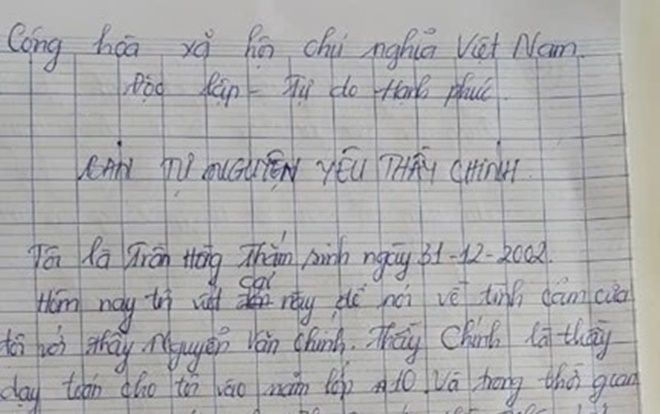 Cộng hòa xã hội chủ nghĩa Việt Nam.
Độc lập - Tự do Hạnh phúc.
BẢN TỰ NGUYỆN YÊU THẦY CHÍNH
Tôi là Trần Hồng Thắm sinh ngày 31-12-2002.
cái
Hôm nay tôi viết này để nói về tình cảm của
tôi với thầy Nguyễn Văn Chính. Thầy Chính là thầy
dạy toán cho tôi vào năm lớp 10. Và trong thời gian